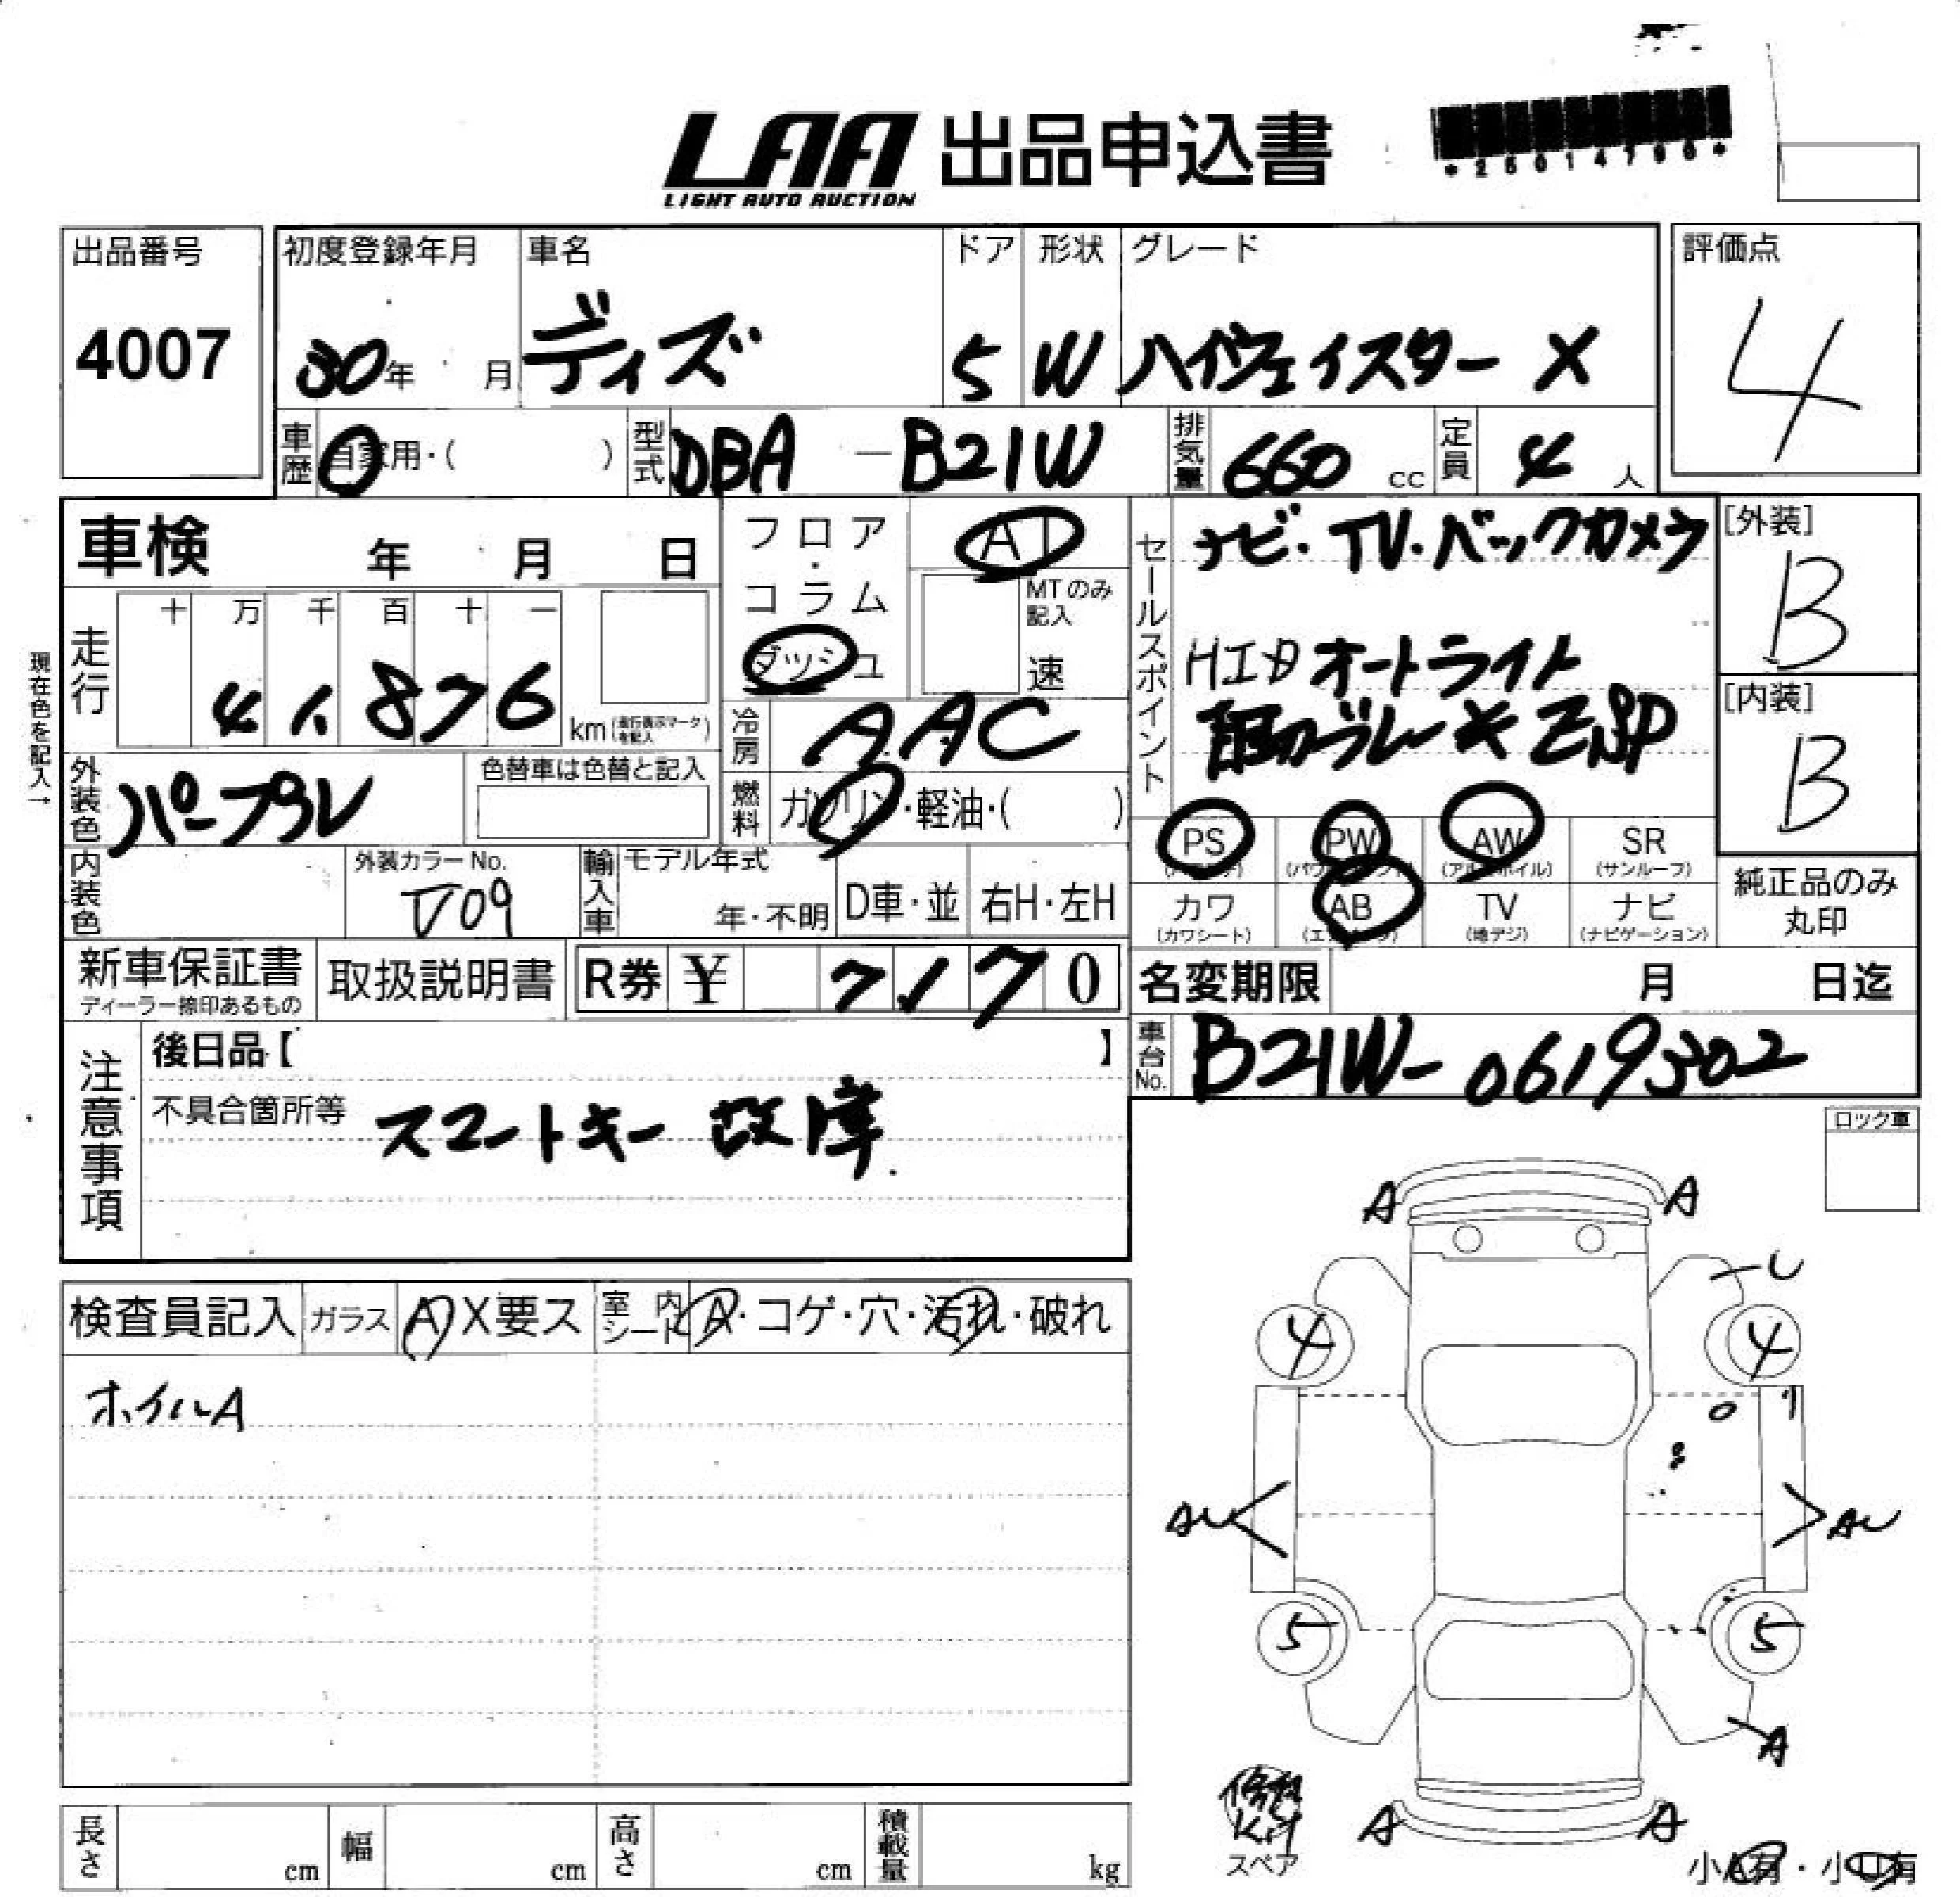 LAA 出品申込書
LIGHT AUTO AUCTION
*25014790*
出品番号
4007
初度登録年月
30年 月
車名
デイズ
ドア
5
形状
W
グレード
ハイウェイスター X
評価点
4
車歴 自家用・( )
型式 DBA-B21W
排気量 660 cc
定員 4 人
車検 年 月 日
フロア・コラム
ダッシュ
AT
MTのみ記入
速
セールスポイント
ナビ・TV・バックカメラ
HID オートライト
自動ブレーキ
[外装]
B
[内装]
B
現在色を記入→
走行
十 万 千 百 十 一
41,876
km (走行表示マークを記入)
冷房 AAC
外装色 パープル
色替車は色替と記入
燃料 ガソリン・軽油・( )
PS PW AW SR
(アルミホイル) (サンルーフ)
カワ AB TV ナビ
(カワシート) (地デジ) (ナビゲーション)
純正品のみ
丸印
内装色
外装カラーNo.
輸入車
モデル年式
年・不明
D車・並
右H・左H
新車保証書
ディーラー捺印あるもの
取扱説明書
R券 ¥ 7170
名変期限 月 日迄
車台No. B21W-0619302
注意事項
後日品【 】
不具合箇所等 スマートキー 故障
ロック車
検査員記入 ガラス A X要ス 室内シート A・コゲ・穴・汚れ・破れ
ホイルA
A A
U
4 4
AU AU
5 5
A
A A
修理
Kit
スペア
小A有・小U有
長さ cm 幅 cm 高さ cm 積載量 kg